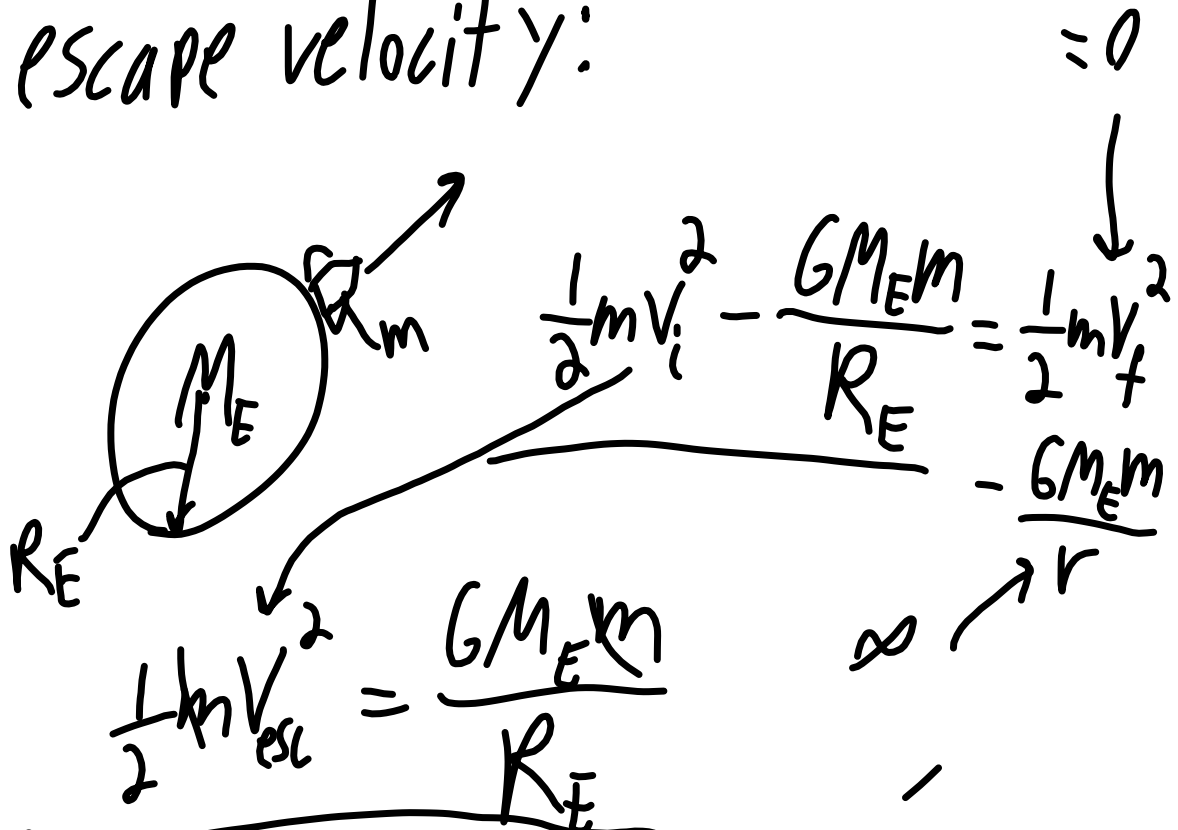 escape velocity:
=0
m
M_E
R_E
1/2 mv_i^2 - GM_Em/R_E = 1/2 mv_f^2
- GM_Em/r
∞
1/2 mv_esc^2 = GM_Em/R_E